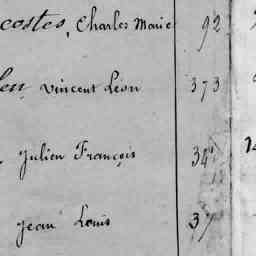 costes, Charles Marie 92
len, Vincent Léon 373
Julien François 34
Jean Louis 37